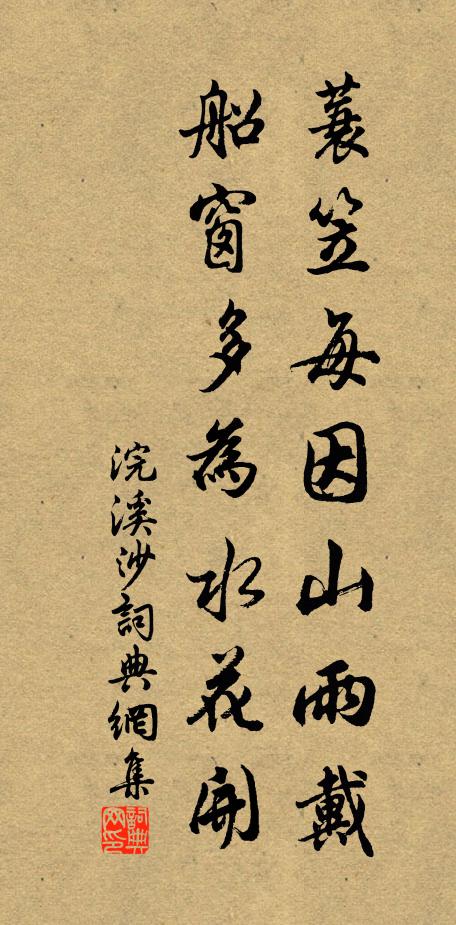 蓑笠每因山雨戴
船窗多為水花開
浣溪沙詞典網集
詞典
网印